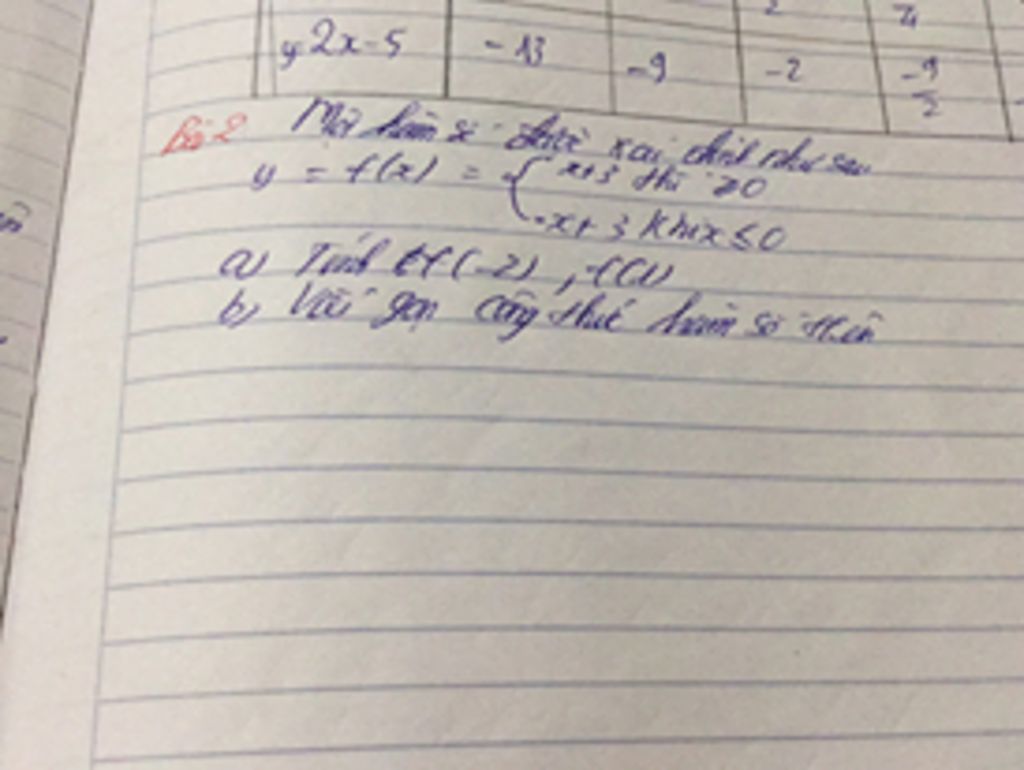 2 4
y 2x-5 -13 -9 -2 -9/2
Bài 2 Một hàm số được xác định như sau
y = f(x) = { x+3 thì ≥0
-x+3 khi x ≤ 0
a) Tính f(-2), f(1)
b) Viết gọn công thức hàm số trên